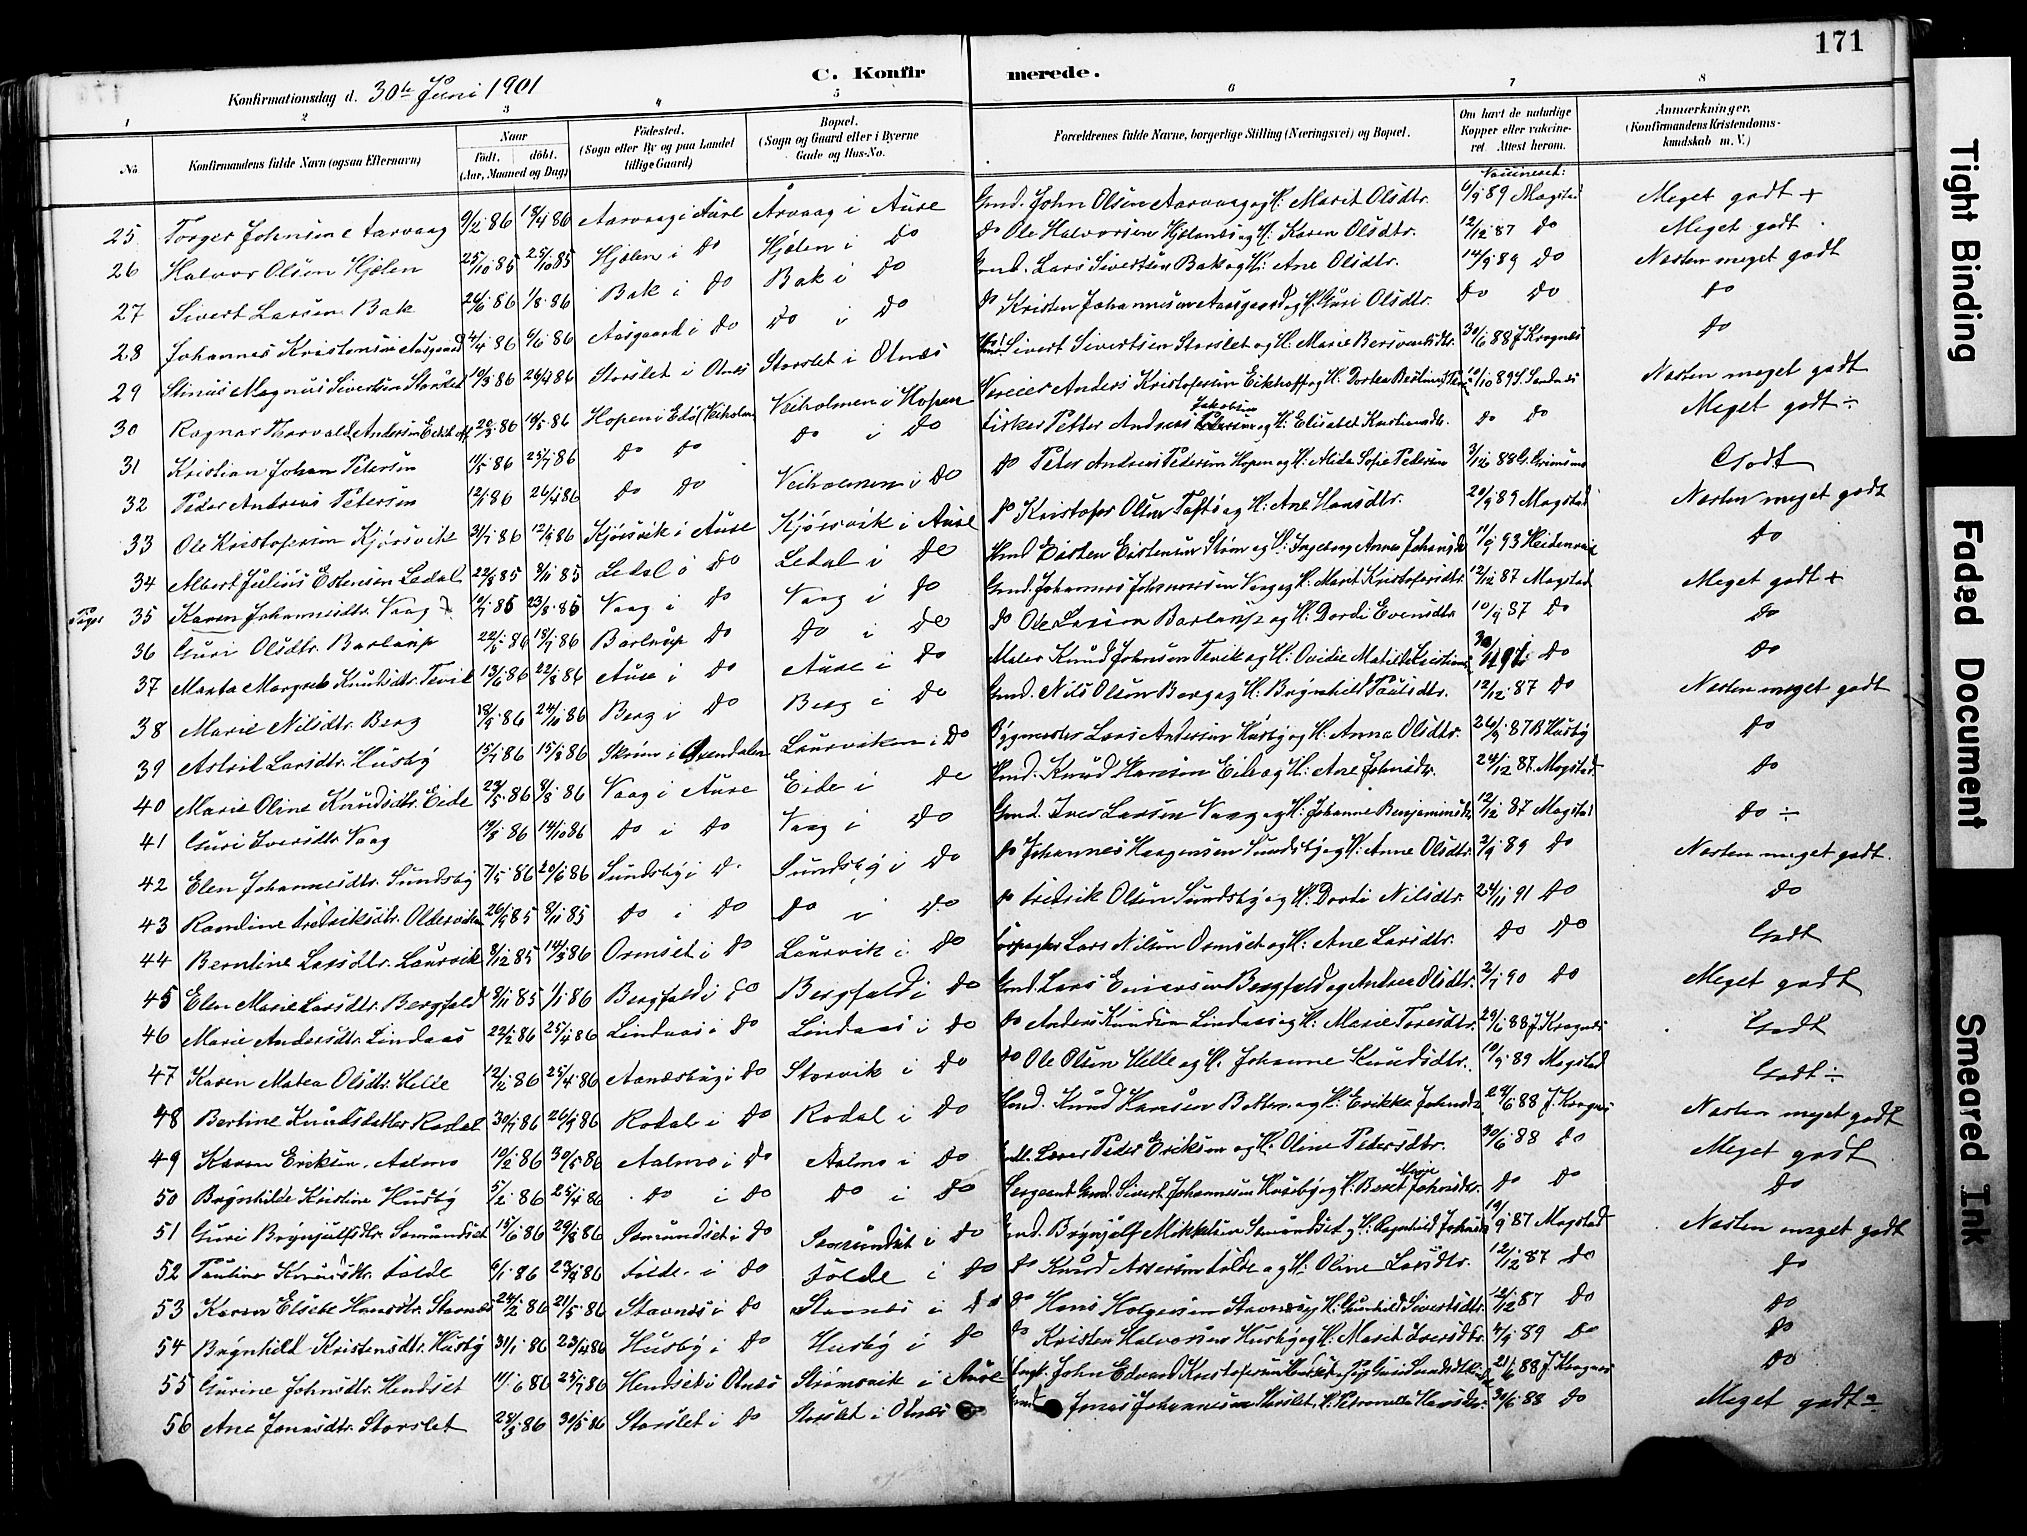 171
C. Konfirmerede.
Konfirmationsdag d. 30te Juni 1901
1 2 3 4 5 6 7 8
No
Konfirmandens fulde Navn (ogsaa Efternavn)
Naar
födt. döbt.
(Aar, Maaned og Dag)
Födested.
(Sogn eller By og paa Landet tillige Gaard)
Bopæl.
(Sogn og Gaard eller i Byerne Gade og Hus-No.
Forældrenes fulde Navne, borgerlige Stilling (Næringsvei) og Bopæl.
Om havt de naturlige Kopper eller vakcineret Attest herom.
Anmærkninger.
(Konfirmandens Kristendomskundskab m. V.)
Vaccineret:
25 Torger Johnsen Aarvaag 9/2 86 18/4 86 Aarvaag i Aure Årvaag i Aure Gmd. John Olsen Aarvaag og H: Marit Olsdtr. 4/9 89 Mogstad Meget godt +
26 Halvor Olsen Hjelen 25/10 85 Hjelen i do Hjelen i do do Ole Halvorsen og H: Karen Olsdtr. 12/12 87 do Meget godt
27 Sivert Larsen Bak 26/6 86 1/8 86 Bak i do Bak i do Gmd. Lars Sivertsen Bak og H: Ane Olsdtr. 14/9 89 do Næsten meget godt
28 Johannes Kristensen Aasgaard 4/4 86 6/6 86 Aasgaard i do do i do do Kristen Johannesen Aasgaard og H: Guri Olsdtr. do do do
29 Stinus Magnus Sivertsen Storslet 19/3 86 26/4 86 Storslet i Otnes Storslet i Otnes Sivert Sivertsen Storslet og H: Marie 30/6 88 J. Krognes do
30 Ragnar Thorvald Andersen Hopen i Edø Veiholmen Veiholmen i Hopen Anders Kristofersen Eikhoff og H: Dortea Næsten meget godt
31 Kristian Johan Petersen 11/5 86 25/7 86 do do do i do Fisker Petter Andreas Jakobsen og H: Elisabet do do Meget godt ÷
32 Peder Andreas Petersen 26/4 86 do do Veiholmen i do do Peter Andreas Pedersen Hopen og H: Alida Sofie Pedersen 3/12 88 Godt
33 Ole Kristofersen Kjørsvik 12/9 86 Kjørsvik i Aure Kjørsvik i Aure do Kristofer Olsen og H: Ane Hansdtr. 20/9 89 Mogstad Næsten meget godt
34 Albert Julius Estensen Ledal 22/8 85 8/11 85 Ledal i do Ledal i do og H: Ingeborg Anna 11/9 93 do
Piger 35 Karen Johannesdtr. Vaag 23/8 85 Vaag i do Vaag i do Gmd. Johannes Johannesen Vaag og H: Marit Kristofersdtr. 12/12 87 Mogstad Meget godt +
36 Guri Olsdtr. Barlaup 22/5 86 18/7 86 Barlaup do do i do do Ole Larsen Barlaup og H: Dordi Evensdtr. 10/9 87 do do
37 Marta Margrete Knudsdtr. Tevik 13/6 86 22/8 86 Aure i do Aure i do Maler Knud Johnsen Tevik og H: Ovidie Matilde do do
38 Marie Nilsdtr. Berg 18/9 86 24/10 86 Berg i do Berg i do Gmd. Nils Olsen Berg og H: Brynhild Paulsdtr. 12/12 87 do Næsten meget godt
39 Astrid Larsdtr. Husby 15/7 86 15/8 86 Skrøm i Laurviken i do Bygmester Lars Andersen Husby og H: Anna Olsdtr. 26/9 87 B Husby do
40 Marie Oline Knudsdtr. Eide 8/8 86 Vaag i Aure Eide i do Gmd. Knud Hansen Eide og H: Ane Johnsdtr. 24/12 87 Mogstad do
41 Guri Iversdtr. Vaag 19/8 86 14/10 86 do i do Vaag i do Gmd. Iver Larsen Vaag og H: Johanne Benjaminsdtr. 12/12 87 Mogstad do ÷
42 Elen Johannesdtr. Sundsby 7/5 86 20/6 86 Sundsby i do Sundsby i do do Johannes Haagensen Sundsby og H: Anne Olsdtr. 2/9 89 do Næsten meget godt
43 Ramline Fredriksdtr. Oldervik 26/9 85 8/11 85 do i do do i do do Fredrik Olsen Sundsby og H: Dordi Nilsdtr. 24/11 91 do do
44 Berntine Larsdtr. Laurvik 8/12 85 14/3 86 Ormset i do Laurvik i do Lars Nilsen Ormset og H: Ane Larsdtr. do do Godt
45 Elen Marie Larsdtr. Bergfald 9/11 85 1/1 86 Bergfald i do Bergfald i do Gmd. Lars Bergfald og Andrea Olsdtr. 2/7 90 do Meget godt
46 Marie Andersdtr. Lindaas 22/2 86 25/4 86 Lindaas i do Lindaas i do do Anders Knudsen Lindaas og H: Marie Toresdtr. 29/6 88 J. Krognes Godt
47 Karen Matea Olsdtr. Helle 12/2 86 25/4 86 i do Storvik i do do Ole Olsen Helle og H. Johanne Knudsdtr. 10/9 89 Mogstad Godt ÷
48 Bertine Knudsdatter Rodal 30/7 86 26/9 86 Rodal i do Rodal i do Gmd. Knud Hansen og H: Erikka Johnsdtr. 29/6 88 J. Krognes Næsten meget godt
49 Karen Eriksen Aalmo 10/2 86 30/5 86 Aalmo i do Aalmo i do Peder Eriksen og H: Oline Pedersdtr. 30/6 88 do Meget godt
50 Brynhilde Kristine Husby 5/2 86 25/4 86 do i do do i do Sergeant Gmd. Sivert Johannesen Husby og H: Beret Marie Johnsdtr. do do do
51 Guri Brynjulfsdtr. Semundset 15/6 86 29/8 86 Semundset i do Semundset i do Gmd. Brynjulf Mikkelsen Semundset og H: Ragnhild 19/9 87 Mogstad Næsten meget godt
52 Pauline Knudsdtr. Folde 6/1 86 Folde i do Folde i do do Knud Assersen Folde og H: Oline Larsdtr. 12/12 87 do do
53 Karen Elsebe Hansdtr. Stavnes 24/2 86 21/5 86 Stavnes i do Stavnes i do do Hans Holgersen Stavnes og H: Gunhild Sivertsdtr. 12/12 87 do do
54 Brynhild Kristensdtr. Husby 31/1 86 23/4 86 Husby i do Husby i do do Kristen Halvorsen Husby og H: Marit Iversdtr. 4/9 89 do do
55 Gurine Johnsdtr. Hendset 11/6 86 25/7 86 Hendset i Otnes Strømsvik i Aure John Edvard Kristofersen Hendset og 21/6 88 J. Krognes do
56 Ane Jonasdtr. Storslet 28/3 86 30/5 86 Storslet i do Storslet i Otnes Jonas Johannesen Storslet, H. Petronella Hansdtr. 30/6 88 do Meget godt
Tight Binding
Faded Document
Smeared Ink